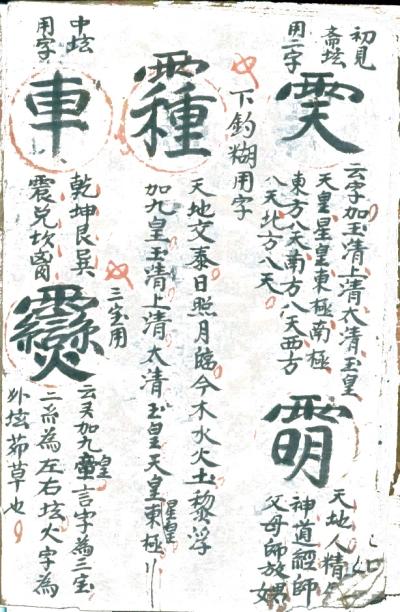 初見
斋坛
用二字
𩂇
云字加玉清上清太清玉皇
天皇星皇東極南極
東方八天南方八天西方
八天北方八天
天地人精
神道經師
父母師放
下釣糊用字
天地交泰日照月臨今木水火土
加九皇玉清上清太清玉皇天皇東極
星皇
中坛
用字
車
乾坤艮巽
震兌坎離
三宝用
云又加九皇言字為三宝
二糸為左右坛火字為
外坛茆草也